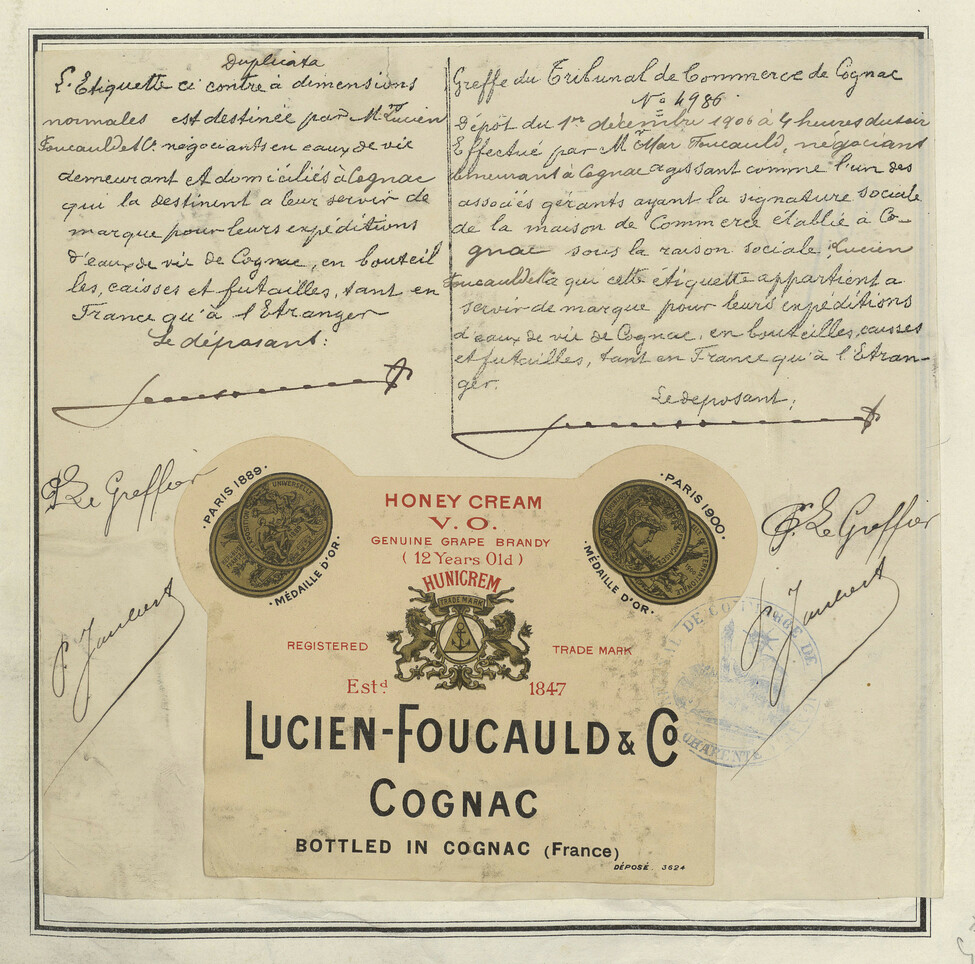 Duplicata
L'Etiquette ci contre à dimensions
normales est destinée par Mr Lucien
Foucauld et Cie négociants en eaux de vie
demeurant et domiciliés à Cognac
qui la destinent a leur servir de
marque pour leurs expéditions
d'eaux de vie de Cognac, en bouteil
les, caisses et futailles, tant en
France qu'à l'Etranger
Le déposant:
Greffe du Tribunal de Commerce de Cognac
No 4986.
Dépôt du 1er décembre 1906 à 4 heures du soir
Effectué par Mr Foucauld, négociant
demeurant à Cognac agissant comme l'un des
associés gérants ayant la signature sociale
de la maison de Commerce établie à Co-
gnac sous la raison sociale Lucien
Foucauld et Cie à qui cette étiquette appartient a
servir de marque pour leurs expeditions
d'eaux de vie de Cognac, en bouteilles, caisses
et futailles, tant en France qu'à l'Etran-
ger.
Le déposant;
P. Le Greffier
P. Le Greffier
PARIS 1889.
MÉDAILLE D'OR.
PARIS 1900.
MÉDAILLE D'OR.
HONEY CREAM
V.O.
GENUINE GRAPE BRANDY
(12 Years Old)
HUNICREM
TRADE MARK
REGISTERED TRADE MARK
Estd 1847
LUCIEN-FOUCAULD & Co
COGNAC
BOTTLED IN COGNAC (France)
DÉPOSÉ. 3624
DE COMMERCE DE
CHARENTE